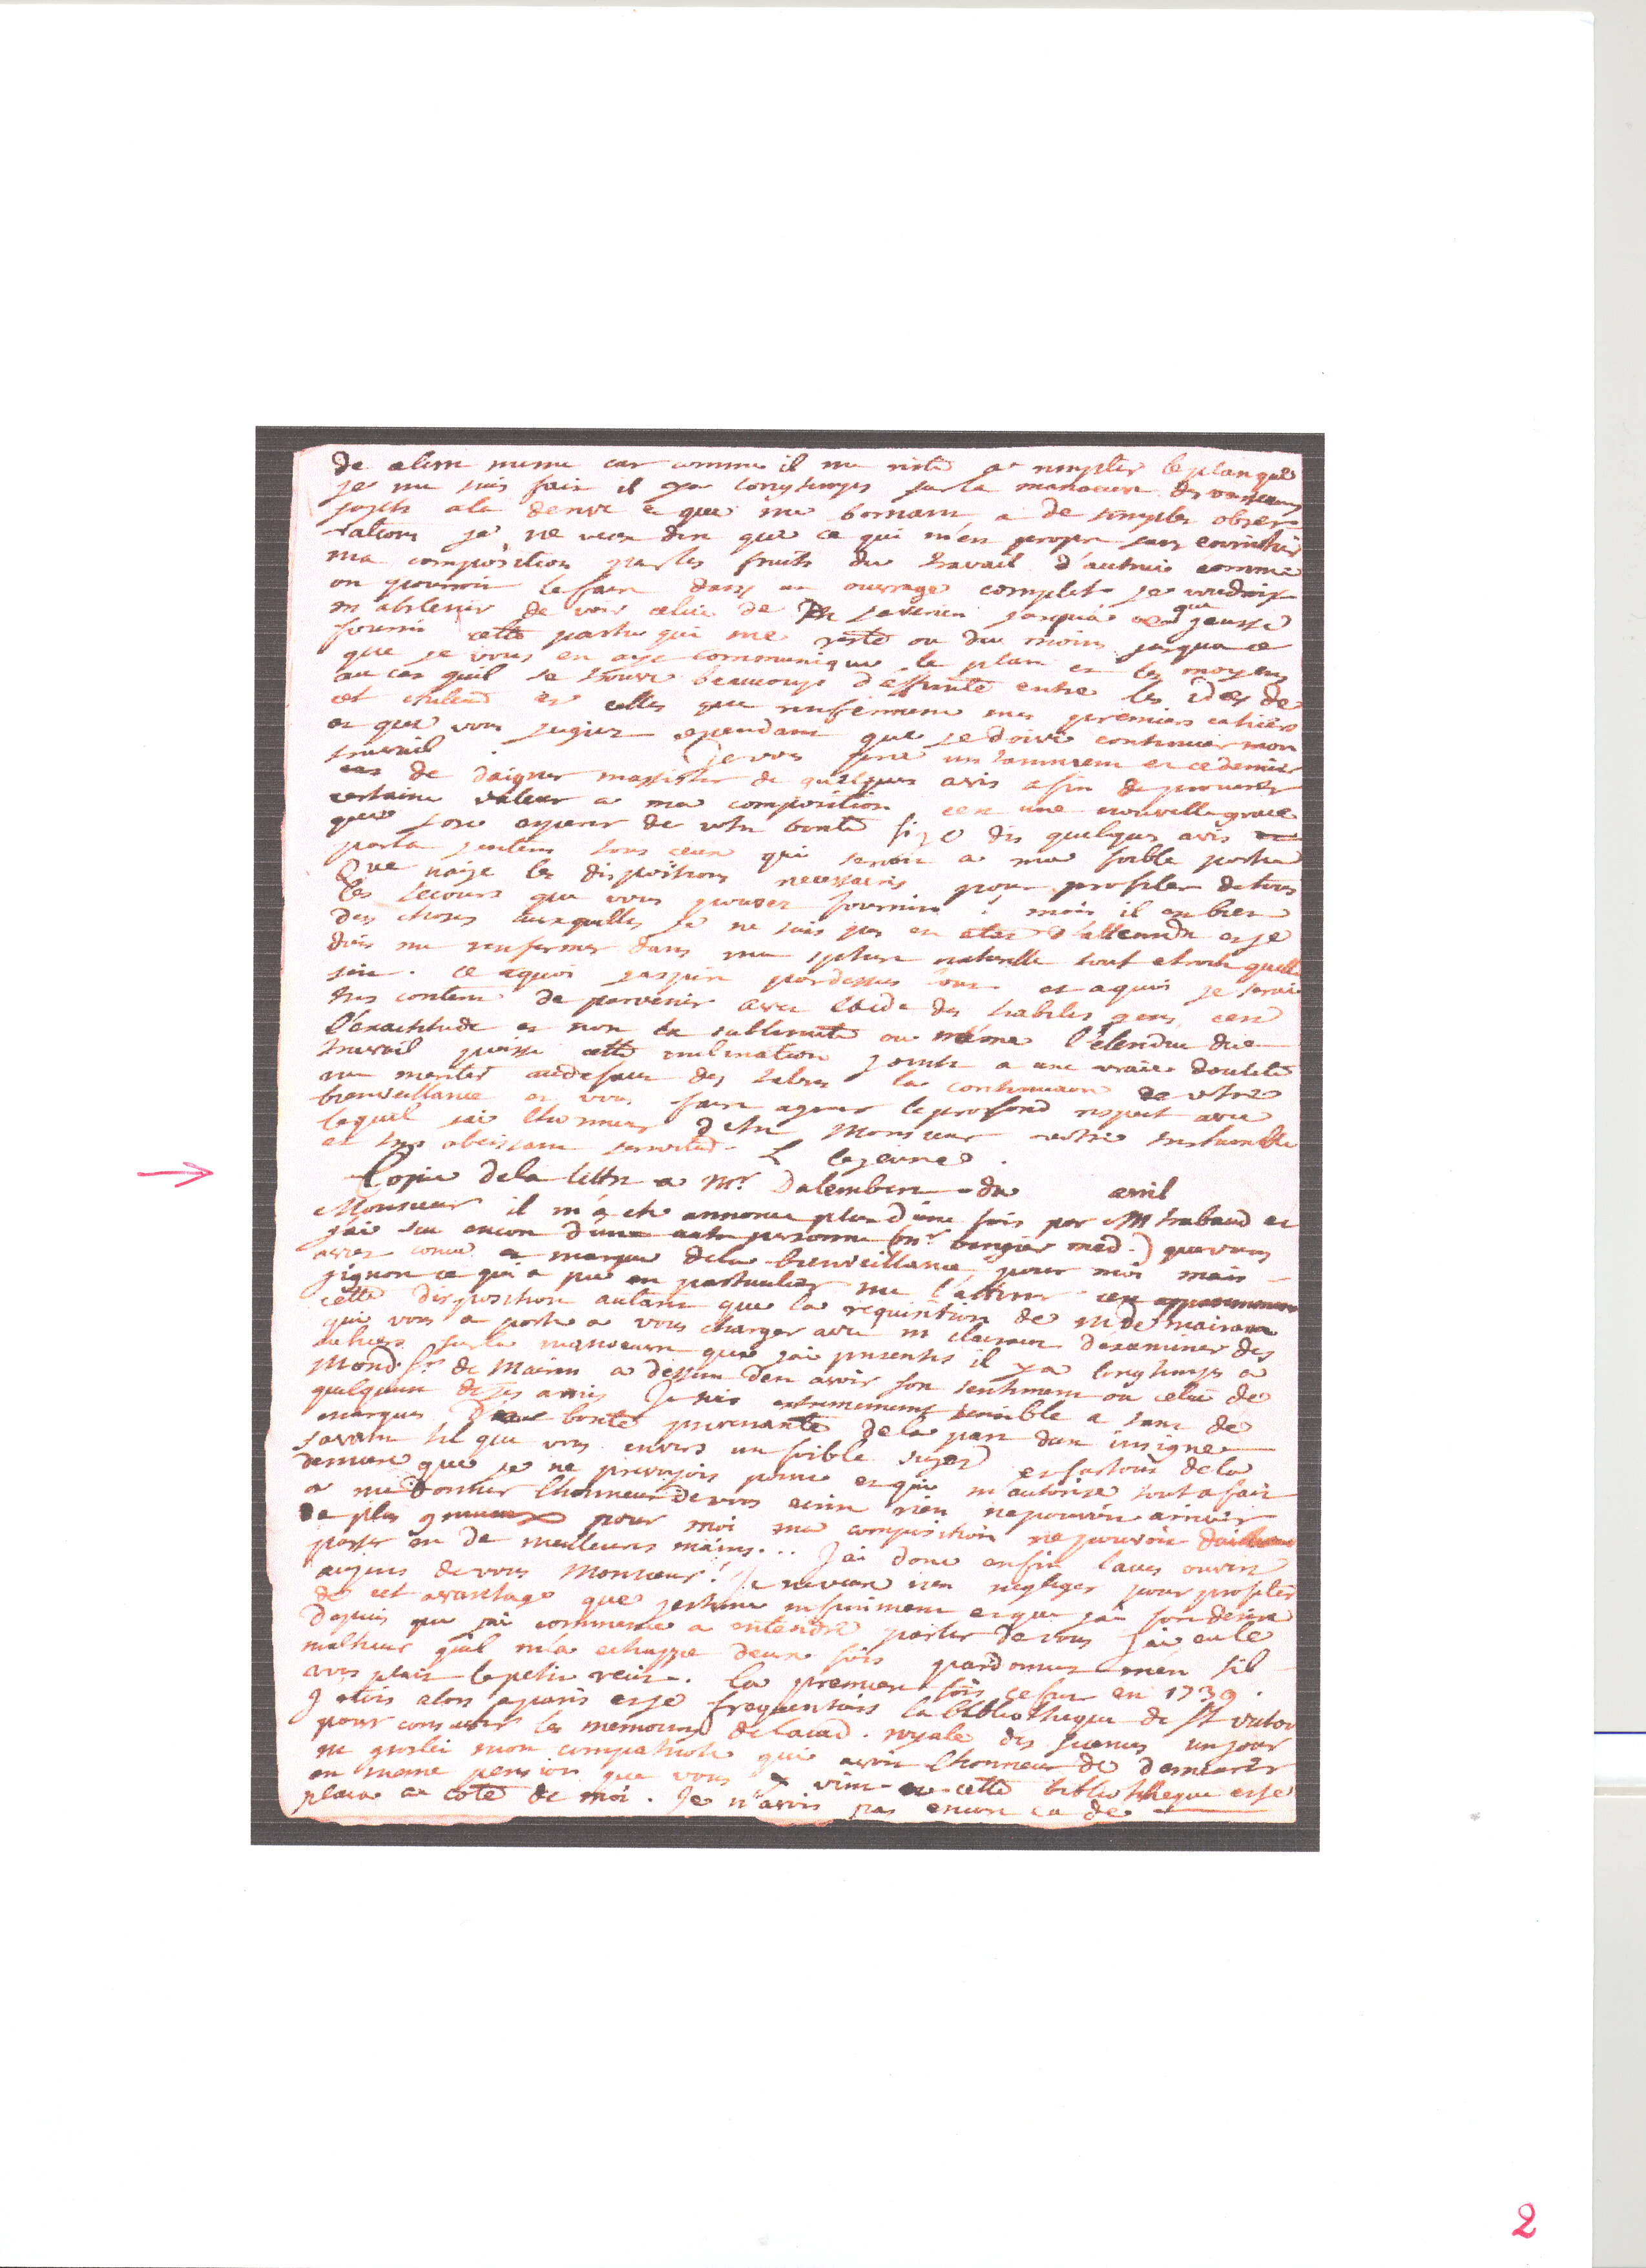 de celui meme car comme il me reste a remplir le plan que
je me suis fait il y a longtemps sur la manoeuvre des vaisseaux
sujets a la derive et que me bornant a de simples obser-
vations je ne veux dire que ce qui m'est propre sans enrichir
ma composition par les fruits du travail d'autrui comme
on pourroit le faire dans un ouvrage complet je voudrois
m'abstenir de voir celui de Mr saverien jusqu'a ce que jeusse
fourni cette partie qui me reste ou du moins jusqua ce
que je vous en aye communiqué le plan et les moyens
au cas quil se trouve beaucoup d'affinité entre les idées de
cet et celles que renferment mes premiers cahiers
et que vous jugiez cependant que je doive continuer mon
travail. je vous prie instamment en ce dernier
cas de daigner massister de quelques avis afin de procurer
certaine valeur a ma composition cest une nouvelle grace
que jose esperer de votre bonté si je dis quelques avis
parla jentens tous ceux qui seroient a ma foible portée
Que naije les dispositions necessaires pour profiter de tous
les secours que vous pouvez fournir ! mais il est bien
des choses auxquelles je ne suis pas en etat d'atteindre et je
dois me renfermer dans ma sphere naturelle tout etroite quelle
soit. ce aquoi jaspire pardessus tout et aquoi je serai
tres content de parvenir avec l'aide des habiles gens, cest
l'exactitude et non la sublimité ou même l'étendue du
travail puisse cette inclination jointe a une vraie docilité
me meriter audefaut des talens la continuation de votre
bienveillance et vous faire agreer le profond respect avec
lequel jai lhonneur detre Monsieur votre tres humble
et tres obeissant serviteur L
Copie dela lettre a Mr. Dalembert du avril
Monsieur il m'a eté annoncé plus d'une fois par Mr trabaud et
jai su encore d'une autre personne (Mr. med.) que vous
aviez conçu et marqué dela bienveillance pour moi mais
jignore ce qui a pu en particulier me l'attirer
cette disposition autant que la requisition de M de mairan
qui vous a porté a vous charger avec m clairaut dexaminer des
cahiers sur la manoeuvre que jai presentés il y a longtemps a
Mond. Sr. de Mairan a dessein d'en avoir son sentiment ou celui de
quelquun de ses amis je suis extremement sensible a tant de
marques bonté prevenante dela part dun insigne
savant tel que vous envers un foible sujet et surtout dela
derniere que je ne prevoyois point et qui m'autorise tout a fait
a me donner lhonneur de vous ecrire rien ne pouvoit arriver
de plus pour moi ma composition ne pouvoit dailleurs
passer en de meilleures mains... jai donc enfin lacces ouvert
aupres de vous Monsieur! je ne veux rien negliger pour profiter
de cet avantage que jestime infiniment et que jai fort desiré
depuis que jai commencé a entendre parler de vous jai eu le
malheur quil m'a echappé deux fois pardonnez men sil
vous plait le petit recit. la premiere fois ce fut en 1739.
J etois alors a paris et je frequentois la bibliotheque de St victor
pour consulter les memoires de lacad. royale des sciences un jour
mr mon compatriote qui avoit lhonneur de demeurer
en meme pension que vous y vint a cette bibliotheque et se
plaça a coté de moi. Je n'avois pas encore eu de
2